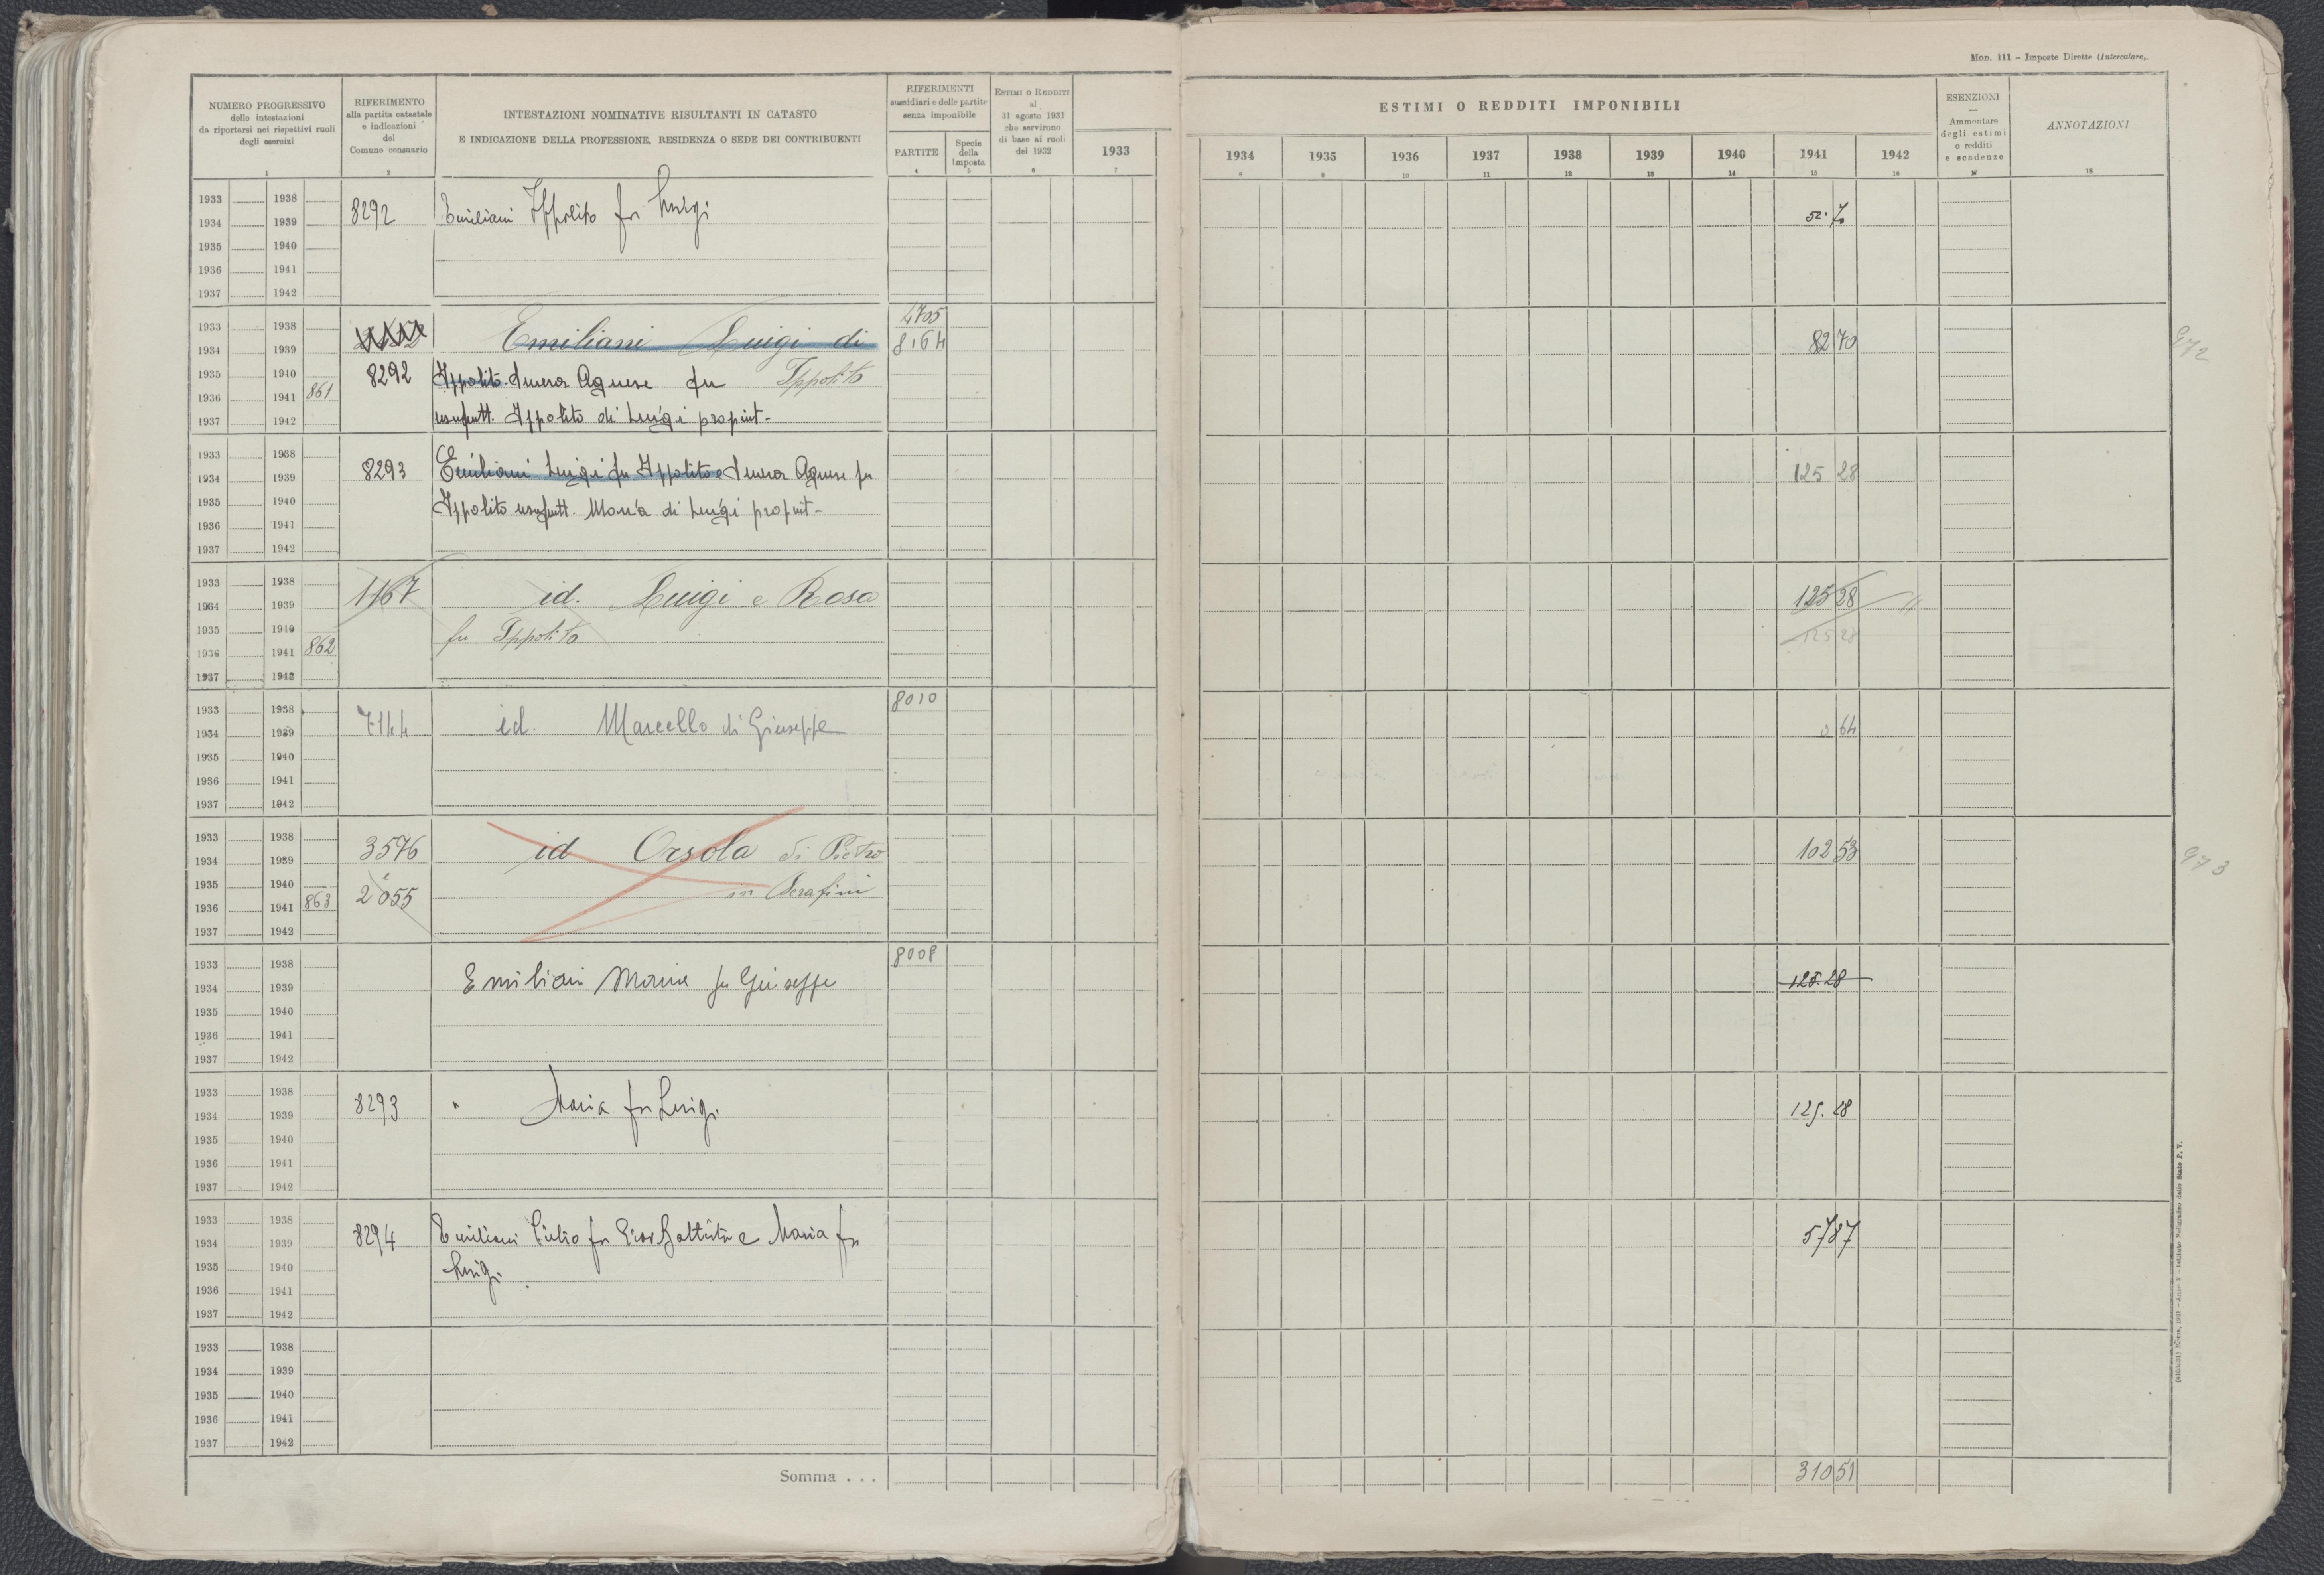 Mod. 111 – Imposte Dirette (Intercalare).
NUMERO PROGRESSIVO
delle intestazioni
da riportarsi nei rispettivi ruoli
degli esercizi
1
RIFERIMENTO
alla partita catastale
e indicazioni
del
Comune censuario
2
INTESTAZIONI NOMINATIVE RISULTANTI IN CATASTO
E INDICAZIONE DELLA PROFESSIONE, RESIDENZA O SEDE DEI CONTRIBUENTI
RIFERIMENTI
sussidiari e delle partite
senza imponibile
PARTITE
4
Specie
della
Imposta
5
ESTIMI O REDDITI
al
31 agosto 1931
che servirono
di base ai ruoli
del 1932
6
1933
7
ESTIMI O REDDITI IMPONIBILI
1934 1935 1936 1937 1938 1939 1940 1941 1942
8 9 10 11 12 13 14 15 16
ESENZIONI
—
Ammontare
degli estimi
o redditi
e scadenze
ANNOTAZIONI
18
1933 1938
8292 Emiliani Ippolito fu Luigi 52.70
1934 1939
1935 1940
1936 1941
1937 1942
4705
1933 1938
Emiliani Luigi di 8164 82 70
1934 1939
1935 1940
8292 Ippolito Agnese fu Ippolito
1936 1941 861
usufrutt. Ippolito di Luigi propriet-
1937 1942
1933 1938
8293 Emiliani Luigi fu Ippolito e Agnese fu 125 28
1934 1939
1935 1940
Ippolito usufrutt. Maria di Luigi propriet-
1936 1941
1937 1942
1933 1938
1167 id. Luigi e Rosa 125 28
1934 1939
1935 1940
fu Ippolito 125 28
1936 1941 862
1937 1942
8010
1933 1938
7144 id. Marcello di Giuseppe 0 64
1934 1939
1935 1940
1936 1941
1937 1942
1933 1938
3576 id Orsola di Pietro 102 53
1934 1939
973
1935 1940
2055 in Serafini
1936 1941 863
1937 1942
8008
1933 1938
Emiliani Maria fu Giuseppe 125.28
1934 1939
1935 1940
1936 1941
1937 1942
1933 1938
8293 " Maria fu Luigi 125.28
1934 1939
1935 1940
1936 1941
1937 1942
1933 1938
8294 Emiliani Giulio fu Giov Battista e Maria fu 57 87
1934 1939
1935 1940
Luigi.
1936 1941
1937 1942
1933 1938
1934 1939
1935 1940
1936 1941
1937 1942
Somma . . . 310 51